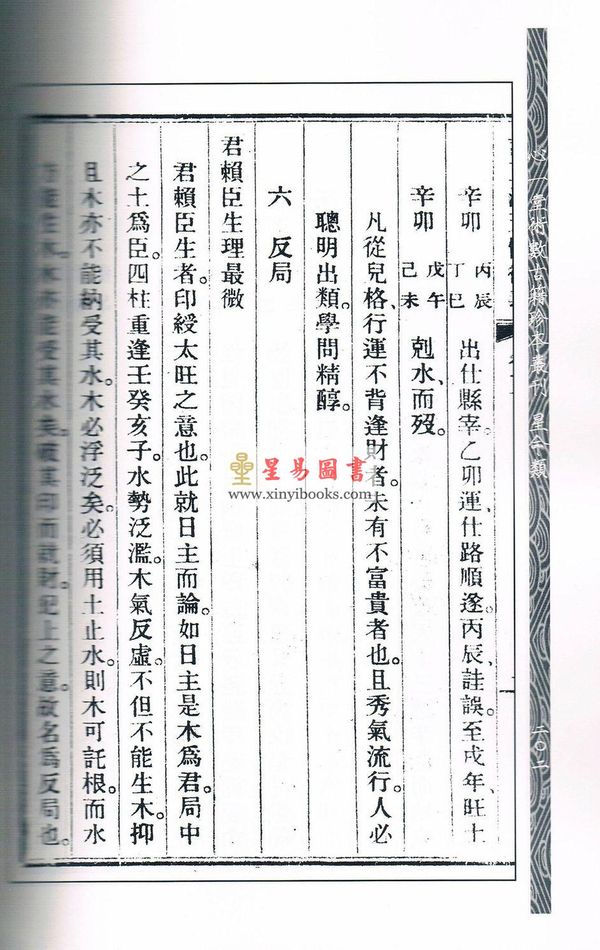 辛卯 丙辰 出仕縣宰。乙卯運、仕路順遂。丙辰、詿誤。至戌年、旺土
丁巳
辛卯 戊午 剋水而歿。
己未
凡從兒格、行運不背逢財者、未有不富貴者也。且秀氣流行、人必
聰明出類。學問精醇。
六 反局
君賴臣生理最微
君賴臣生者。印綬太旺之意也。此就日主而論。如日主是木爲君。局中
之土爲臣。四柱重逢壬癸亥子。水勢泛濫。木氣反虛。不但不能生木。抑
且木亦不能納受其水。木必浮泛矣。必須用土止水。則木可託根。而水
能生木。木亦能受其水矣。破其印而就財。犯上之意。故名爲反局也。
心一堂術數古籍珍本叢刊 星命類
二〇二
星易圖書
www.xinyibooks.com